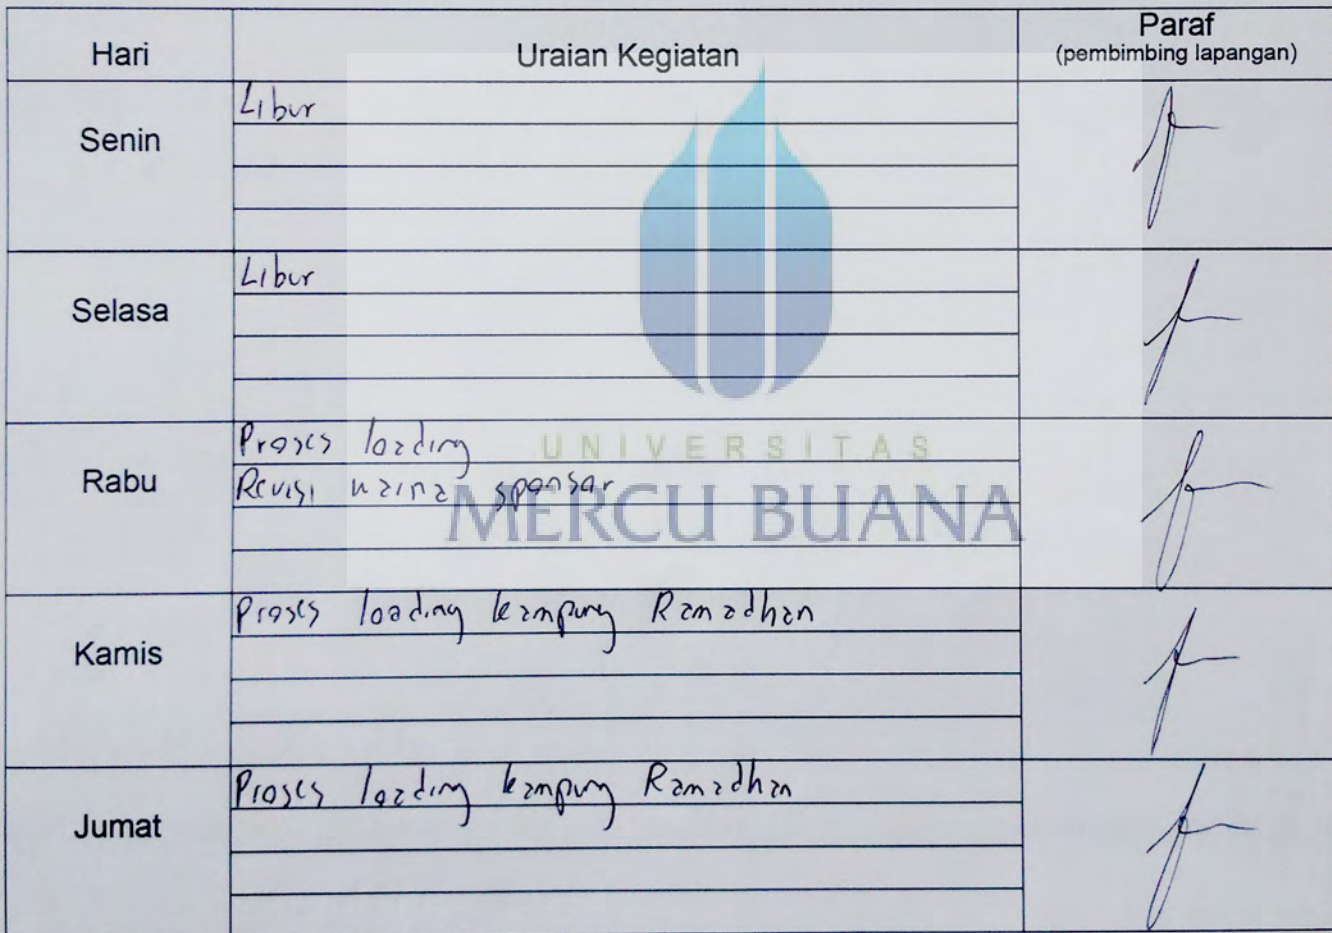 Hari Uraian Kegiatan Paraf
(pembimbing lapangan)
Senin
Libur
Selasa
Libur
Rabu
Proses loading
Revisi nama sponsor
Kamis
Proses loading kampung Ramadhan
Jumat
Proses loading kampung Ramadhan
UNIVERSITAS
MERCU BUANA